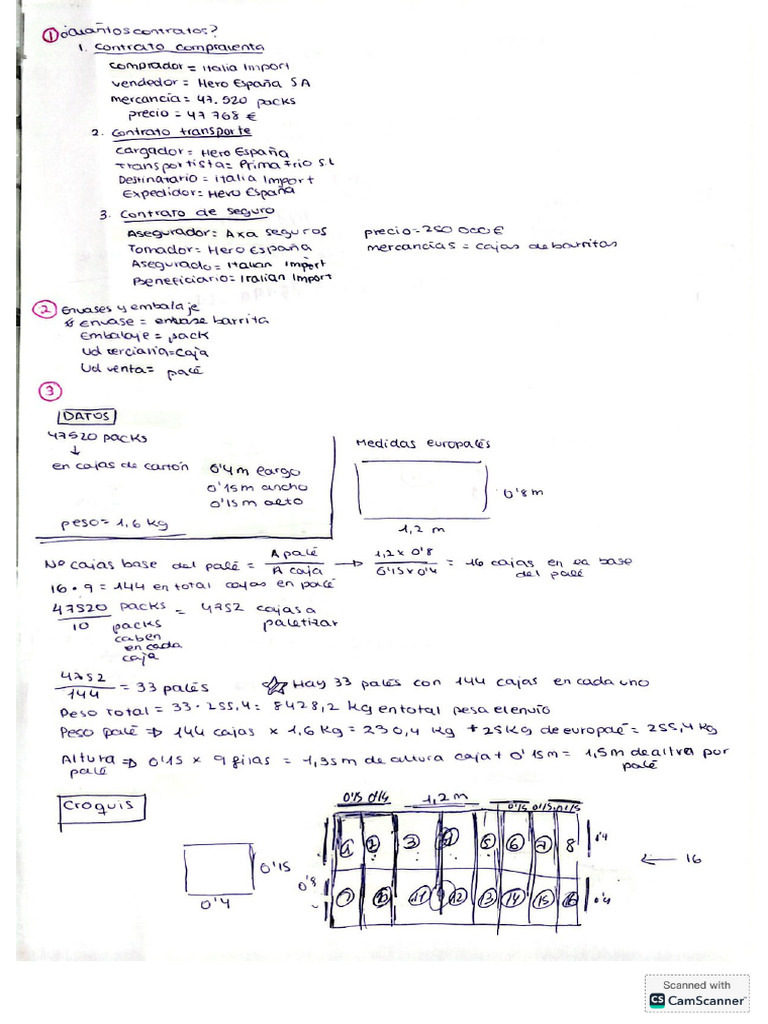 ① ¿Cuántos contratos?
1. Contrato compraventa
comprador = Italia Import
vendedor = Hero España SA
mercancía = 47.520 packs
precio = 47 768 €
2. Contrato transporte
Cargador = Hero España
Transportista = Prima Frio S.L
Destinatario = Italia Import
Expedidor = Hero España
3. Contrato de seguro
Asegurador = Axa seguros precio = 250 000 €
Tomador = Hero España mercancías = cajas de barritas
Asegurado = Italian Import
Beneficiario = Italian Import
② Envases y embalaje
envase = barrita
Embalaje = pack
Ud terciaria = caja
Ud venta = palé
③
DATOS
47520 packs
↓
en cajas de cartón 0'4 m largo
0'15 m ancho
0'15 m alto
peso = 1,6 kg
Medidas europalés
0'8 m
1,2 m
Nº cajas base del palé = A palé / A caja → 1,2 x 0'8 / 0'15 x 0'4 = 16 cajas en la base del palé
16 · 9 = 144 en total cajas en palé
47520 packs / 10 packs caben en cada caja = 4752 cajas a paletizar
4752 / 144 = 33 palés ☆ Hay 33 palés con 144 cajas en cada uno
Peso Total = 33 · 255,4 = 8428,2 kg en total pesa el envío
Peso palé ⇒ 144 cajas x 1,6 kg = 230,4 kg + 25 kg de europalé = 255,4 kg
Altura palé ⇒ 0'15 x 9 filas = 1,35 m de altura caja + 0'15 m = 1,5 m de altura por palé
Croquis
0'15
0'4
0'15 0'15 1,2 m 0'15 0'15 0'15
1 2 3 4 5 6 7 8 0'4
← 16
0'8
9 10 11 12 13 14 15 16 0'4
Scanned with
CS CamScanner